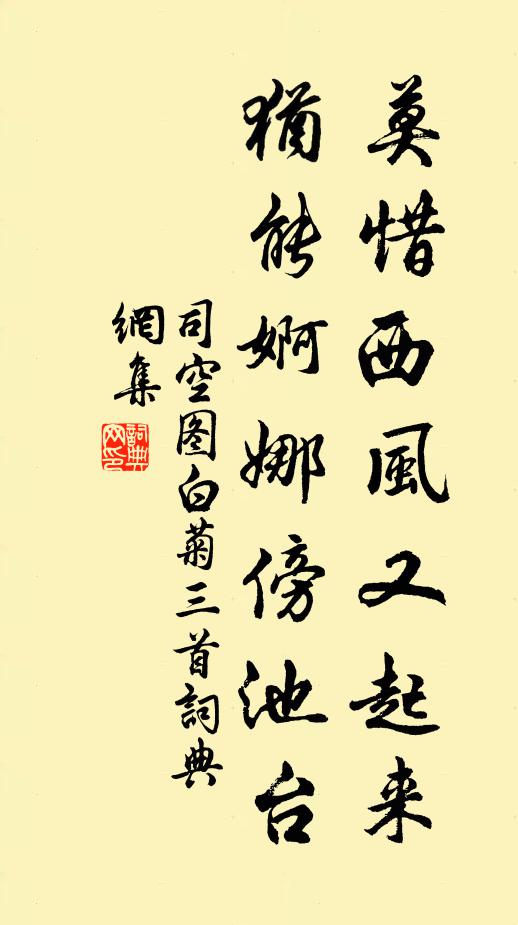 莫惜西風又起来
猶能婀娜傍池台
司空图白菊三首詞典
網集
詞典
网印